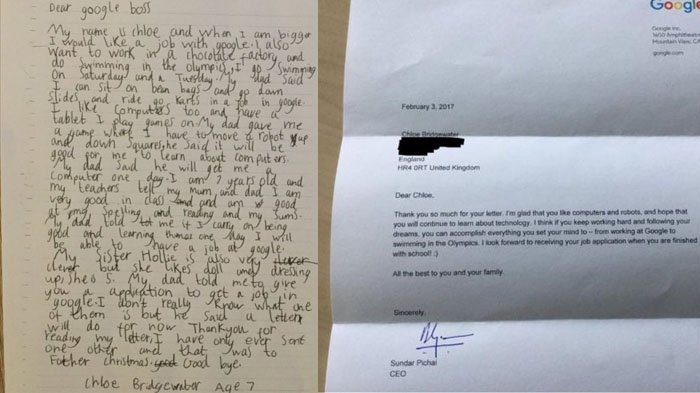 Dear google boss
My name is Chloe and when I am bigger
I would like a job with google. I also
want to work in a chocolate factory and
do swimming in the olympics, I go swimming
on Saturday and a Tuesday. My dad said
I can sit on bean bags and go down
slides and ride go karts in a job in google.
I like computers too and have a
tablet I play games on. My dad gave me
a game where I have to move a robot up
and down squares, he said it will be
good for me to learn about computers.
My dad said he will get me a
computer one day. I am 7 years old and
my teachers tell my mum and dad I am
very good in class and am good
at my spelling and reading and my sums.
My dad told me if I carry on being
good and learning things one day I will
be able to have a job at google.
My sister Hollie is also very
clever but she likes doll and dressing
up, she is 5. My dad told me to give
you a application to get a job in
google. I don't really know what one
of them is but he said a letter
will do for now. Thankyou for
reading my letter, I have only ever sent
one other and that was to
Father christmas. Good bye.
Chloe Bridgewater Age 7
Google
Google Inc.
1600 Amphitheatre
Mountain View, CA
google.com
February 3, 2017
Chloe Bridgewater
England
HR4 0RT United Kingdom
Dear Chloe,
Thank you so much for your letter. I'm glad that you like computers and robots, and hope that
you will continue to learn about technology. I think if you keep working hard and following your
dreams, you can accomplish everything you set your mind to – from working at Google to
swimming in the Olympics. I look forward to receiving your job application when you are finished
with school! :)
All the best to you and your family.
Sincerely,
Sundar Pichai
CEO